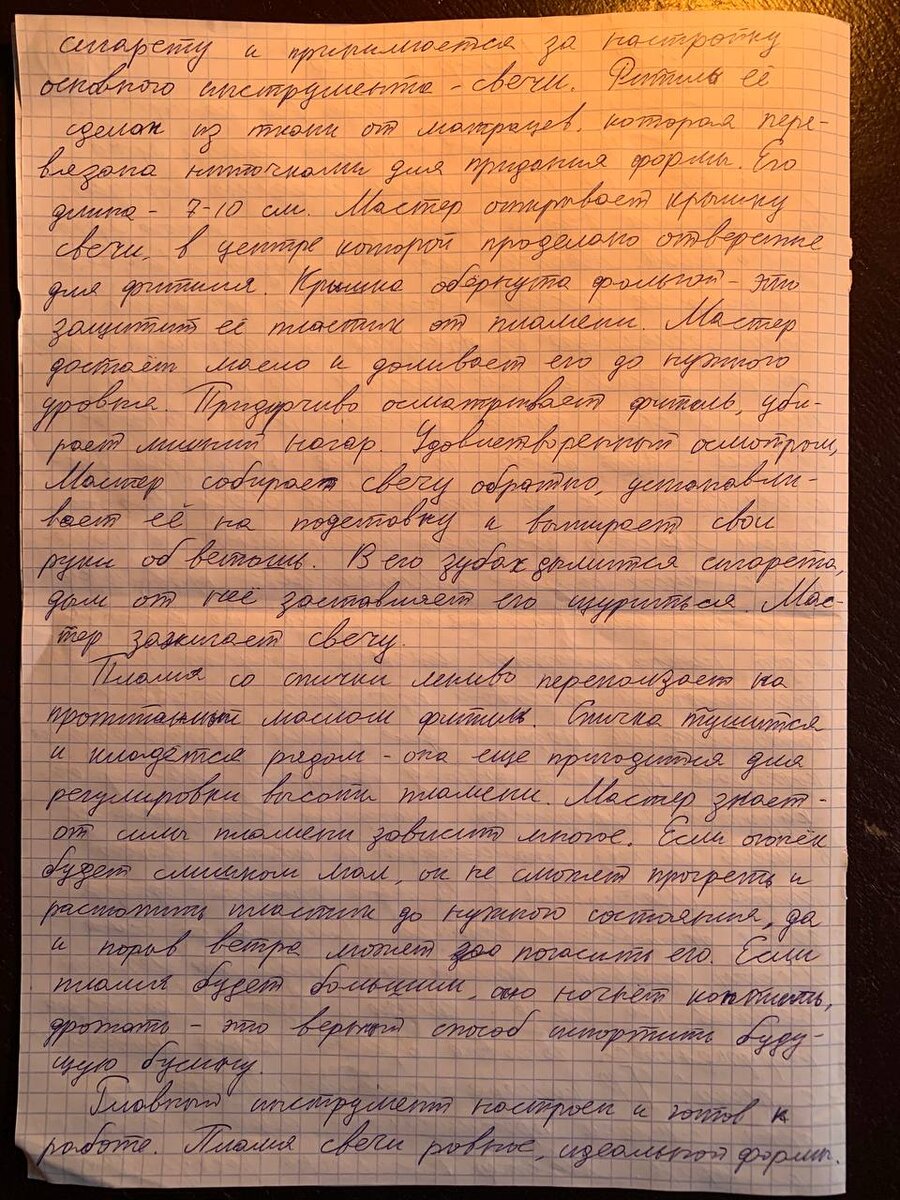 сигарету и принимается за настройку
основного инструмента - свечи. Фитиль её
сделан из ткани от матрацев, которая пере-
вязана ниточками для придания формы. Его
длина - 7-10 см. Мастер открывает крышку
свечи, в центре которой проделано отверстие
для фитиля. Крышка обёрнута фольгой - это
защитит её пластик от пламени. Мастер
достаёт масло и доливает его до нужного
уровня. Придирчиво осматривает фитиль, уби-
рает лишний нагар. Удовлетворенный осмотром,
Мастер собирает свечу обратно, устанавли-
вает её на подставку и вытирает свои
руки об ветошь. В его зубах дымится сигарета,
дым от неё заставляет его щуриться. Мас-
тер зажигает свечу.
Пламя со спички лениво переползает на
пропитанный маслом фитиль. Спичка тушится
и кладётся рядом - она еще пригодится для
регулировки высоты пламени. Мастер знает -
от силы пламени зависит многое. Если огонёк
будет слишком мал, он не сможет прогреть и
растопить пластик до нужного состояния, да
и порыв ветра может погасить его. Если
пламя будет большим, оно начнет коптить,
дрожать - это верный способ испортить буду-
щую бусину.
Главный инструмент настроен и готов к
работе. Пламя свечи ровное, идеальной формы.